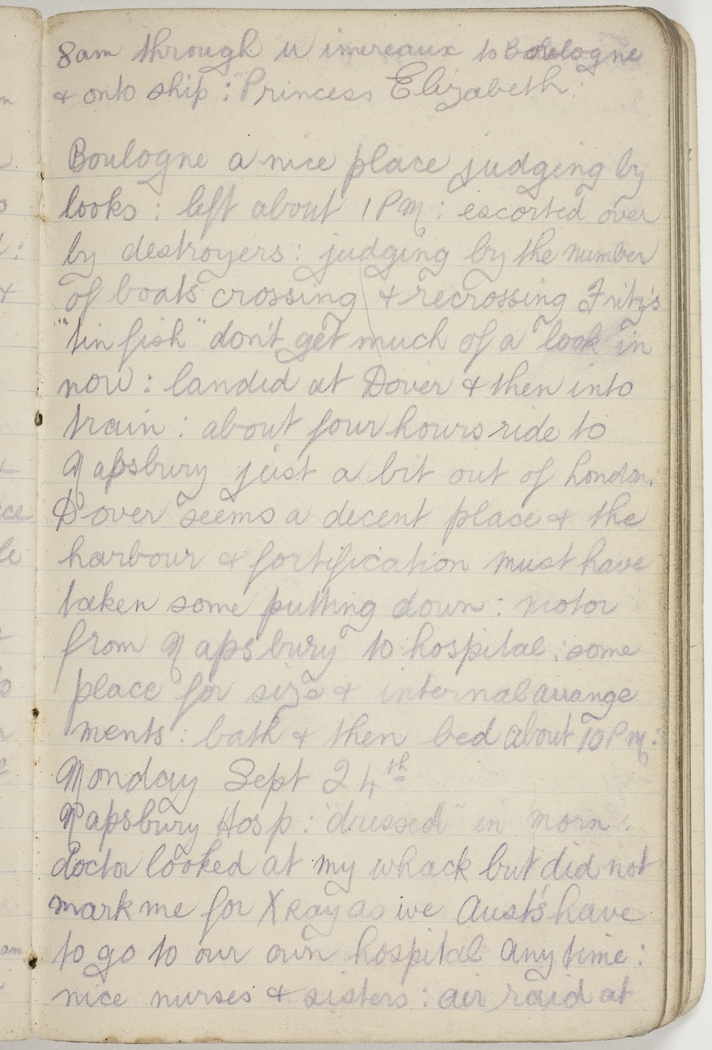 8am through Wimereaux to Boulogne
& onto ship: Princess Elizabeth.
Boulogne a nice place judging by
looks: left about 1PM: escorted over
by destroyers: judging by the number
of boats crossing & recrossing Fritz's
"tin fish" don't get much of a "look in"
now: landed at Dover & then into
train: about four hours ride to
Napsbury just a bit out of London.
Dover seems a decent place & the
harbour & fortification must have
taken some putting down: motor
from Napsbury to hospital: some
place for size & internal arrange
ments: bath & then bed about 10PM:
Monday Sept 24th
Napsbury Hosp: "dressed" in morn.
doctor looked at my whack but did not
mark me for Xray as we Austs have
to go to our own hospital anytime:
nice nurses & sisters: air raid at